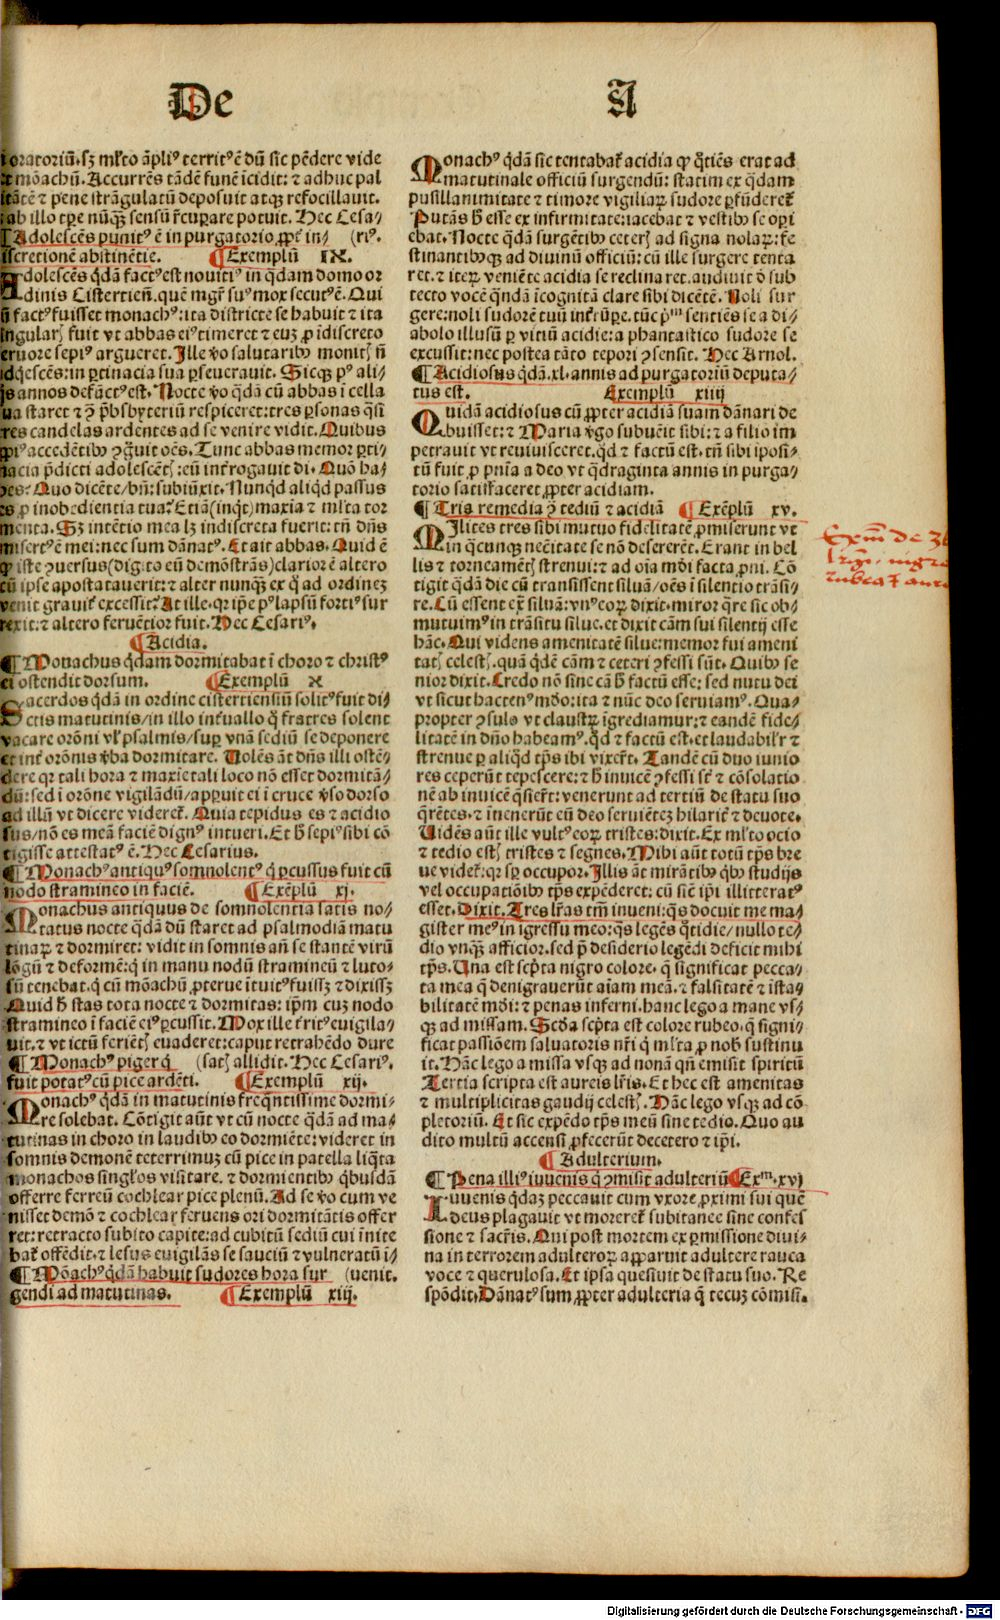 De A
oratoriū. sꝫ ml'to āpli⁹ territ⁹ ē dū sic pēdere vide
mōachū. Accurrēs tādē funē īcidit: ⁊ adhuc pal
itātē ⁊ pene strāgulatū deposuit atqꝫ refocillauit.
ab illo tꝑe nūqꝫ sensū r̄cuꝑare potuit. Hec Cesa/
¶ Adolescēs punit⁹ ē in purgatorio ꝓpt̄ in/ (ri⁹.
iscretionē abstinētie. ¶ Exemplū IX.
Adolescēs q̄dā fact⁹ est nouiti⁹ in q̄dam domo or
dinis Cistercieñ. quē mgr̄ su⁹ mox secut⁹ ē. Qui
ū fact⁹ fuisset monach⁹: ita districte se habuit ⁊ ita
ingularꝭ fuit vt abbas ei⁹ timeret ⁊ euꝫ ꝓ īdiscreto
eruore sepi⁹ argueret. Ille v̄o salutaribꝰ monitꝭ ñ
dq̄escēs: in ꝑtinacia sua ꝑseuerauit. Sicqꝫ p⁹ ali/
s annos defūct⁹ est. Nocte v̄o q̄dā cū abbas ī cella
ua staret ⁊ ꝯ p̄bsbyteriū respiceret: tres ꝑsonas q̄si
res candelas ardentes ad se venire vidit. Quibus
ꝓpi⁹ accedētibꝰ ꝯguit oēs. Tunc abbas memor ꝑti/
nacia p̄dicti adolescētꝭ: eū int̄rogauit di. Quō ha/
bes: Quo dicēte/ bñ: subiūxit. Nunqd aliqd passus
es ꝓ inobedientia tua? Etiā (inqt) maxīa ⁊ ml'ta tor
menta. Sꝫ intētio mea lꝫ indiscreta fuerit: tñ dñs
misert⁹ ē mei: nec sum dānat⁹. Et ait abbas. Quid ē
qꝫ iste ꝯuersus (digito eū demōstrās) clarior ē altero
cū ipse apostatauerit: ⁊ alter nunqꝫ ex q̄ ad ordinez
venit grauit̄ excessit? At ille. qr ip̄e p⁹ lapsū forti⁹ sur
rexit: ⁊ altero feruētior fuit. Hec Cesari⁹.
¶ Acidia.
¶ Monachus q̄dam dormitabat ī choro ⁊ christ⁹
ei ostendit dorsum. ¶ Exemplū X
Sacerdos q̄dā in ordine cisterciensiū solit⁹ fuit di/
ctis matutinis/ in illo int̄uallo q̄ fratres solent
vacare orōni vl' psalmis/ suꝑ vnā sediū se deponere
et int̄ orōnis v̄ba dormitare. Uolēs āt dñs illi ostē/
dere qꝛ tali hora ⁊ maxīe tali loco nō esset dormitā/
dū: sed ī orōne vigilādū/ apꝑuit ei ī cruce v̄so dorso
ad illū vt dicere videret̄. Quia tepidus es ⁊ acidio
sus/ nō es meā faciē dign⁹ intueri. Et h̄ sepi⁹ sibi cō
tigisse attestat⁹ ē. Hec Cesarius.
¶ Monach⁹ antiqu⁹ somnolent⁹ q̄ ꝑcussus fuit cū
nodo stramineo in faciē. ¶ Exēplū xj.
Monachus antiquus de somnolentia satis no/
tatus nocte q̄dā dū staret ad psalmodiā matu
tinaꝝ ⁊ dormiret: vidit in somnis añ se stantē virū
lōgū ⁊ deformē: q̄ in manu nodū stramineū ⁊ luto/
sū tenebat. q̄ cū mōachū ꝓterue ītuit⁹ fuissꝫ ⁊ dixissꝫ
Quid h̄ stas tota nocte ⁊ dormitas: ip̄m cuꝫ nodo
stramineo ī faciē ei⁹ ꝑcussit. Mox ille t̄rit⁹ euigila/
uit. ⁊ vt ictū feriētꝭ euaderet: caput retrahēdo dure
¶ Monach⁹ piger q̄ (satꝭ allidit. Hec Cesari⁹.
fuit potat⁹ cū pice ardēti. ¶ Exemplū xij.
Monach⁹ q̄dā in matutinis freq̄ntissime dormi/
re solebat. Cōtigit aūt vt cū nocte q̄dā ad ma/
tutinas in choro in laudibꝰ eo dormiēte: videret in
somnis demonē teterrimuꝫ cū pice in patella liq̄ta
monachos singl'os visitare. ⁊ dormientibꝰ q̄busdā
offerre ferreū cochlear pice plenū. Ad se v̄o cum ve
nisset demō ⁊ cochlear feruens ori dormitātis offer
ret: retracto subito capite: ad cubitū sediū cui īnite
bat̄ offēdit. ⁊ lesus euigilās se sauciū ⁊ vulneratū ī/
¶ Mōach⁹ q̄dā habuit sudores hora sur (uenit.
gendi ad matutinas. ¶ Exemplū xiij.
Monach⁹ q̄dā sic tentabat̄ acidia qꝫ q̄tiēs erat ad
matutinale officiū surgendū: statim ex q̄dam
pusillanimitate ⁊ timore vigiliaꝝ sudore ꝑfūderet̄
Putās h̄ esse ex infirmitate: iacebat ⁊ vestibꝰ se oꝑi
ebat. Nocte q̄dā surgētibꝰ ceterꝭ ad signa nolaꝝ: fe
stinantibꝰqꝫ ad diuinū officiū: cū ille surgere tenta
ret. ⁊ iteꝝ veniēte acidia se reclinaret. audiuit d̄ sub
tecto vocē q̄ndā īcognitā clare sibi dicētē. Noli sur
gere: noli sudorē tuū int̄rūꝑe. tūc p̄ᵐ sentiēs se a di/
abolo illusū ꝑ vitiū acidie: a phantastico sudore se
excussit: nec postea tāto tepori ꝯsensit. Hec Arnol.
¶ Acidiosus q̄dā. xl. annis ad purgatoriū deputa/
tus est. Exemplū xiiij
Quidā acidiosus cū ꝓpter acidiā suam dānari de
buisset: ⁊ Maria v̄go subuēit sibi: ⁊ a filio im
petrauit vt reuiuisceret. qd ⁊ factū est. tñ sibi iposi/
tū fuit ꝓ pnīa a deo vt q̄draginta annis in purga/
torio satisfaceret ꝓpter acidiam.
¶ Tris remedia ꝯ tediū ⁊ acidiā ¶ Exēplū xv.
Milites tres sibi mutuo fidelitatē ꝓmiserunt vt
in q̄cunqꝫ nec̄itate se nō desererēt. Erant in bel
lis ⁊ torneamētꝭ strenui: ⁊ ad oīa mōi facta ꝓni. Cō
tigit q̄dā die cū transissent siluā/ oēs ī silentio trāsi/
re. Cū essent ext̄ siluā: vn⁹ eoꝝ dixit. miror q̄re sic ob/
mutuim⁹ in trāsitu silue. et dixit cām sui silentij esse
hāc. Qui videns amenitatē silue: memor fui ameni
tatꝭ celestꝭ. quā q̄dē cām ⁊ ceteri ꝯfessi sūt. Quibꝰ se
nior dixit. Credo nō sine cā h̄ factū esse: sed nutu dei
vt sicut hacten⁹ mōo rita ⁊ nūc deo seruiam⁹. Qua/
propter ꝯsulo vt claustꝝ īgrediamur: ⁊ eandē fide/
litatē in dño habeam⁹. qd ⁊ factū est. et laudabil'r ⁊
strenue ꝑ aliqd tp̄s ibi vixer̄t. Tandē cū duo iunio
res ceperūt tepescere: ⁊ h̄ inuicē ꝯfessi sūt ⁊ cōsolatio
nē ab inuicē q̄sier̄t: venerunt ad tertiū de statu suo
q̄rētes. ⁊ inenerūt eū deo seruiētez hilarit̄ ⁊ deuote.
Uidēs aūt ille vult⁹ eoꝝ tristes: dixit. Ex ml'to ocio
⁊ tedio estꝭ tristes ⁊ segnes. Mihi aūt totū tp̄s bre
ue videt̄: qꝛ sꝑ occupor. Illis āt mirātibꝰ qbꝰ studijs
vel occupatiōibꝰ tp̄s expēderet: cū siēt ip̄i illitterat⁹
esset. Dixit. Tres lr̄as tm̄ inueni: q̄s docuit me ma/
gister me⁹ in īgressu meo: q̄s legēs q̄tidie/ nullo te/
dio vnqꝫ afficior. sed p̄ desiderio legēdi deficit mihi
tp̄s. Una est sc̄pta nigro colore. q̄ significat pecca/
ta mea q̄ denigrauerūt aīam meā. ⁊ falsitatē ⁊ īsta/
bilitatē mōi: ⁊ penas inferni. hanc lego a mane vs/
qꝫ ad missam. Scd̄a sc̄pta est colore rubeo. q̄ signi/
ficat passiōem saluatoris nr̄i q̄ ml'ta ꝓ nobꝭ sustinu
it. Hāc lego a missa vsqꝫ ad nonā qñ emisit spiritū
Tertia scripta est aureis lr̄is. Et hec est amenitas
⁊ multiplicitas gaudij celestꝭ. Hāc lego vsqꝫ ad cō
pletoriū. Et sic expēdo tp̄s meū sine tedio. Quo au
dito multū accensi ꝓfecerūt decetero ⁊ ip̄i.
¶ Adulterium.
¶ Pena illi⁹ iuuenis q̄ ꝯmisit adulteriū ¶ Exᵐ. xvj
Iuuenis q̄daꝫ peccauit cum vxore ꝓximi sui quē
deus plagauit vt moreret̄ subitanee sine confes
sione ⁊ sacr̄is. Qui post mortem ex ꝑmissione diui/
na in terrorem adulteroꝝ apꝑaruit adultere rauca
voce ⁊ querulosa. Et ipsa quesiuit de statu suo. Re
spōdit. Dānat⁹ sum ꝓpter adulteria q̄ tecuꝫ cōmisi.
Exm̄ de 3b
nigra
rubea ⁊ aurea
Digitalisierung gefördert durch die Deutsche Forschungsgemeinschaft - DFG